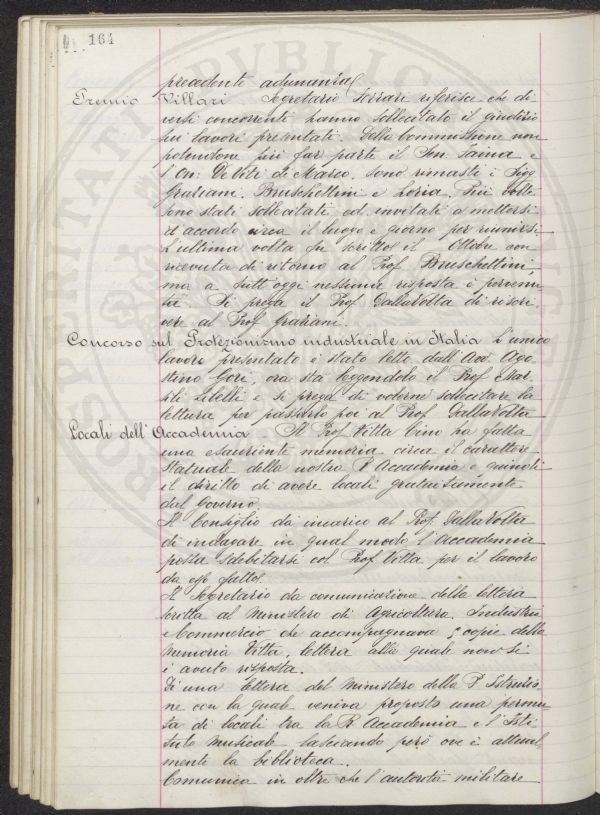 164
precedente adunanza.
Premio Villari Segretario Ferrari riferisce che di
versi concorrenti hanno sollecitato il giudizio
sui lavori presentati. Della Commissione non
potendone più far parte il Sen. Faina e
l'On: De Viti di Marco. Sono rimasti i Sigg
Graziani. Bruschettini e Loria. Più volte
sono stati sollecitati ed invitati a mettersi
d'accordo circa il luogo e giorno per riunirsi
L'ultima volta fu scritto il Ottobre con
ricevuta di ritorno al Prof Bruschettini,
ma a tutt'oggi nessuna risposta è pervenu
ta. Si prega il Prof DallaVolta di riscri
vere al Prof Graziani.
Concorso sul Protezionismo industriale in Italia L'unico
lavoro presentato è stato letto dall'Acc Ago
stino Gori, ora sta leggendolo il Prof Mar
sili Libelli e si prega di volerne sollecitare la
lettura per passarlo poi al Prof. DallaVolta
Locali dell'Accademia Il Prof Vitta Cino ha fatta
una esauriente memoria circa il carattere
statuale della nostra R Accademia e quindi
il diritto di avere locali gratuitamente
dal Governo.
Il Consiglio dà incarico al Prof. DallaVolta
di indagare in qual modo l'Accademia
possa sdebitarsi col Prof Vitta per il lavoro
da esso fatto.
Il Segretario da comunicazione della lettera
scritta al Ministero di Agricoltura. Industria
e Commercio che accompagnava copie della
Memoria Vitta, lettera alla quale non si
è avuto risposta.
Di una lettera del Ministero della P Istruzio
ne con la quale veniva proposto una permu
ta di locali tra la R Accademia e l'Isti
tuto Musicale lasciando però ove è attual
mente la biblioteca.
Comunica in oltre che l'autorità militare